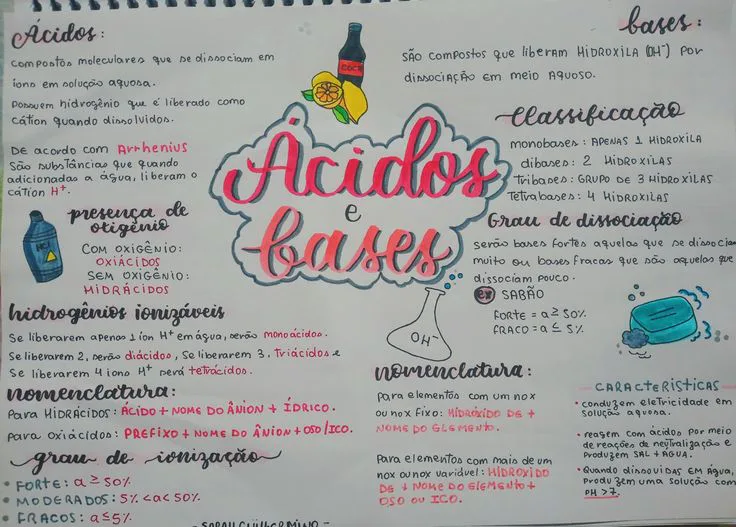 Ácidos:
compostos moleculares que se dissociam em
íons em solução aquosa.
Possuem hidrogênio que é liberado como
cátion quando dissolvidos.
DE acordo com Arrhenius
São substâncias que quando
adicionadas a água, liberam o
cátion H⁺.
presença de
oxigênio
HCl
COM OXIGÊNIO:
OXIÁCIDOS
SEM OXIGÊNIO:
HIDRÁCIDOS
hidrogênios ionizáveis
Se liberarem apenas 1 íon H⁺ em água, serão monoácidos.
Se liberarem 2, serão diácidos, Se liberarem 3, triácidos e
Se liberarem 4 íons H⁺ será tetrácidos.
nomenclatura:
Para HIDRÁCIDOS: ÁCIDO + NOME DO ÂNION + ÍDRICO.
Para oxiácidos: PREFIXO + NOME DO ÂNION + OSO/ICO.
grau de ionização
• FORTE: α ≥ 50%
• MODERADOS: 5% < α < 50%
• FRACOS: α ≤ 5%
COCA
Ácidos
e
bases
bases:
SÃO COMPOSTOS QUE LIBERAM HIDROXILA (OH⁻) POR
DISSOCIAÇÃO EM MEIO AQUOSO.
Classificação
monobases: APENAS 1 HIDROXILA
dibases: 2 HIDROXILAS
Tribases: GRUPO DE 3 HIDROXILAS
Tetrabases: 4 HIDROXILAS
Grau de dissociação
serão bases fortes aquelas que se dissociam
muito ou bases fracas que são aquelas que
dissociam pouco.
ex SABÃO
FORTE = α ≥ 50%
FRACO = α ≤ 5%
OH⁻
nomenclatura:
Para elementos com um nox
ou nox fixo: HIDRÓXIDO DE +
NOME DO ELEMENTO.
Para elementos com mais de um
nox ou nox variável: HIDRÓXIDO
DE + NOME DO ELEMENTO +
OSO OU ICO.
CARACTERÍSTICAS
• conduzem eletricidade em
solução aquosa.
• reagem com ácidos por meio
de reações de neutralização e
Produzem SAL + ÁGUA.
• Quando dissolvidas EM ÁGUA,
Produzem uma solução com
PH > 7.